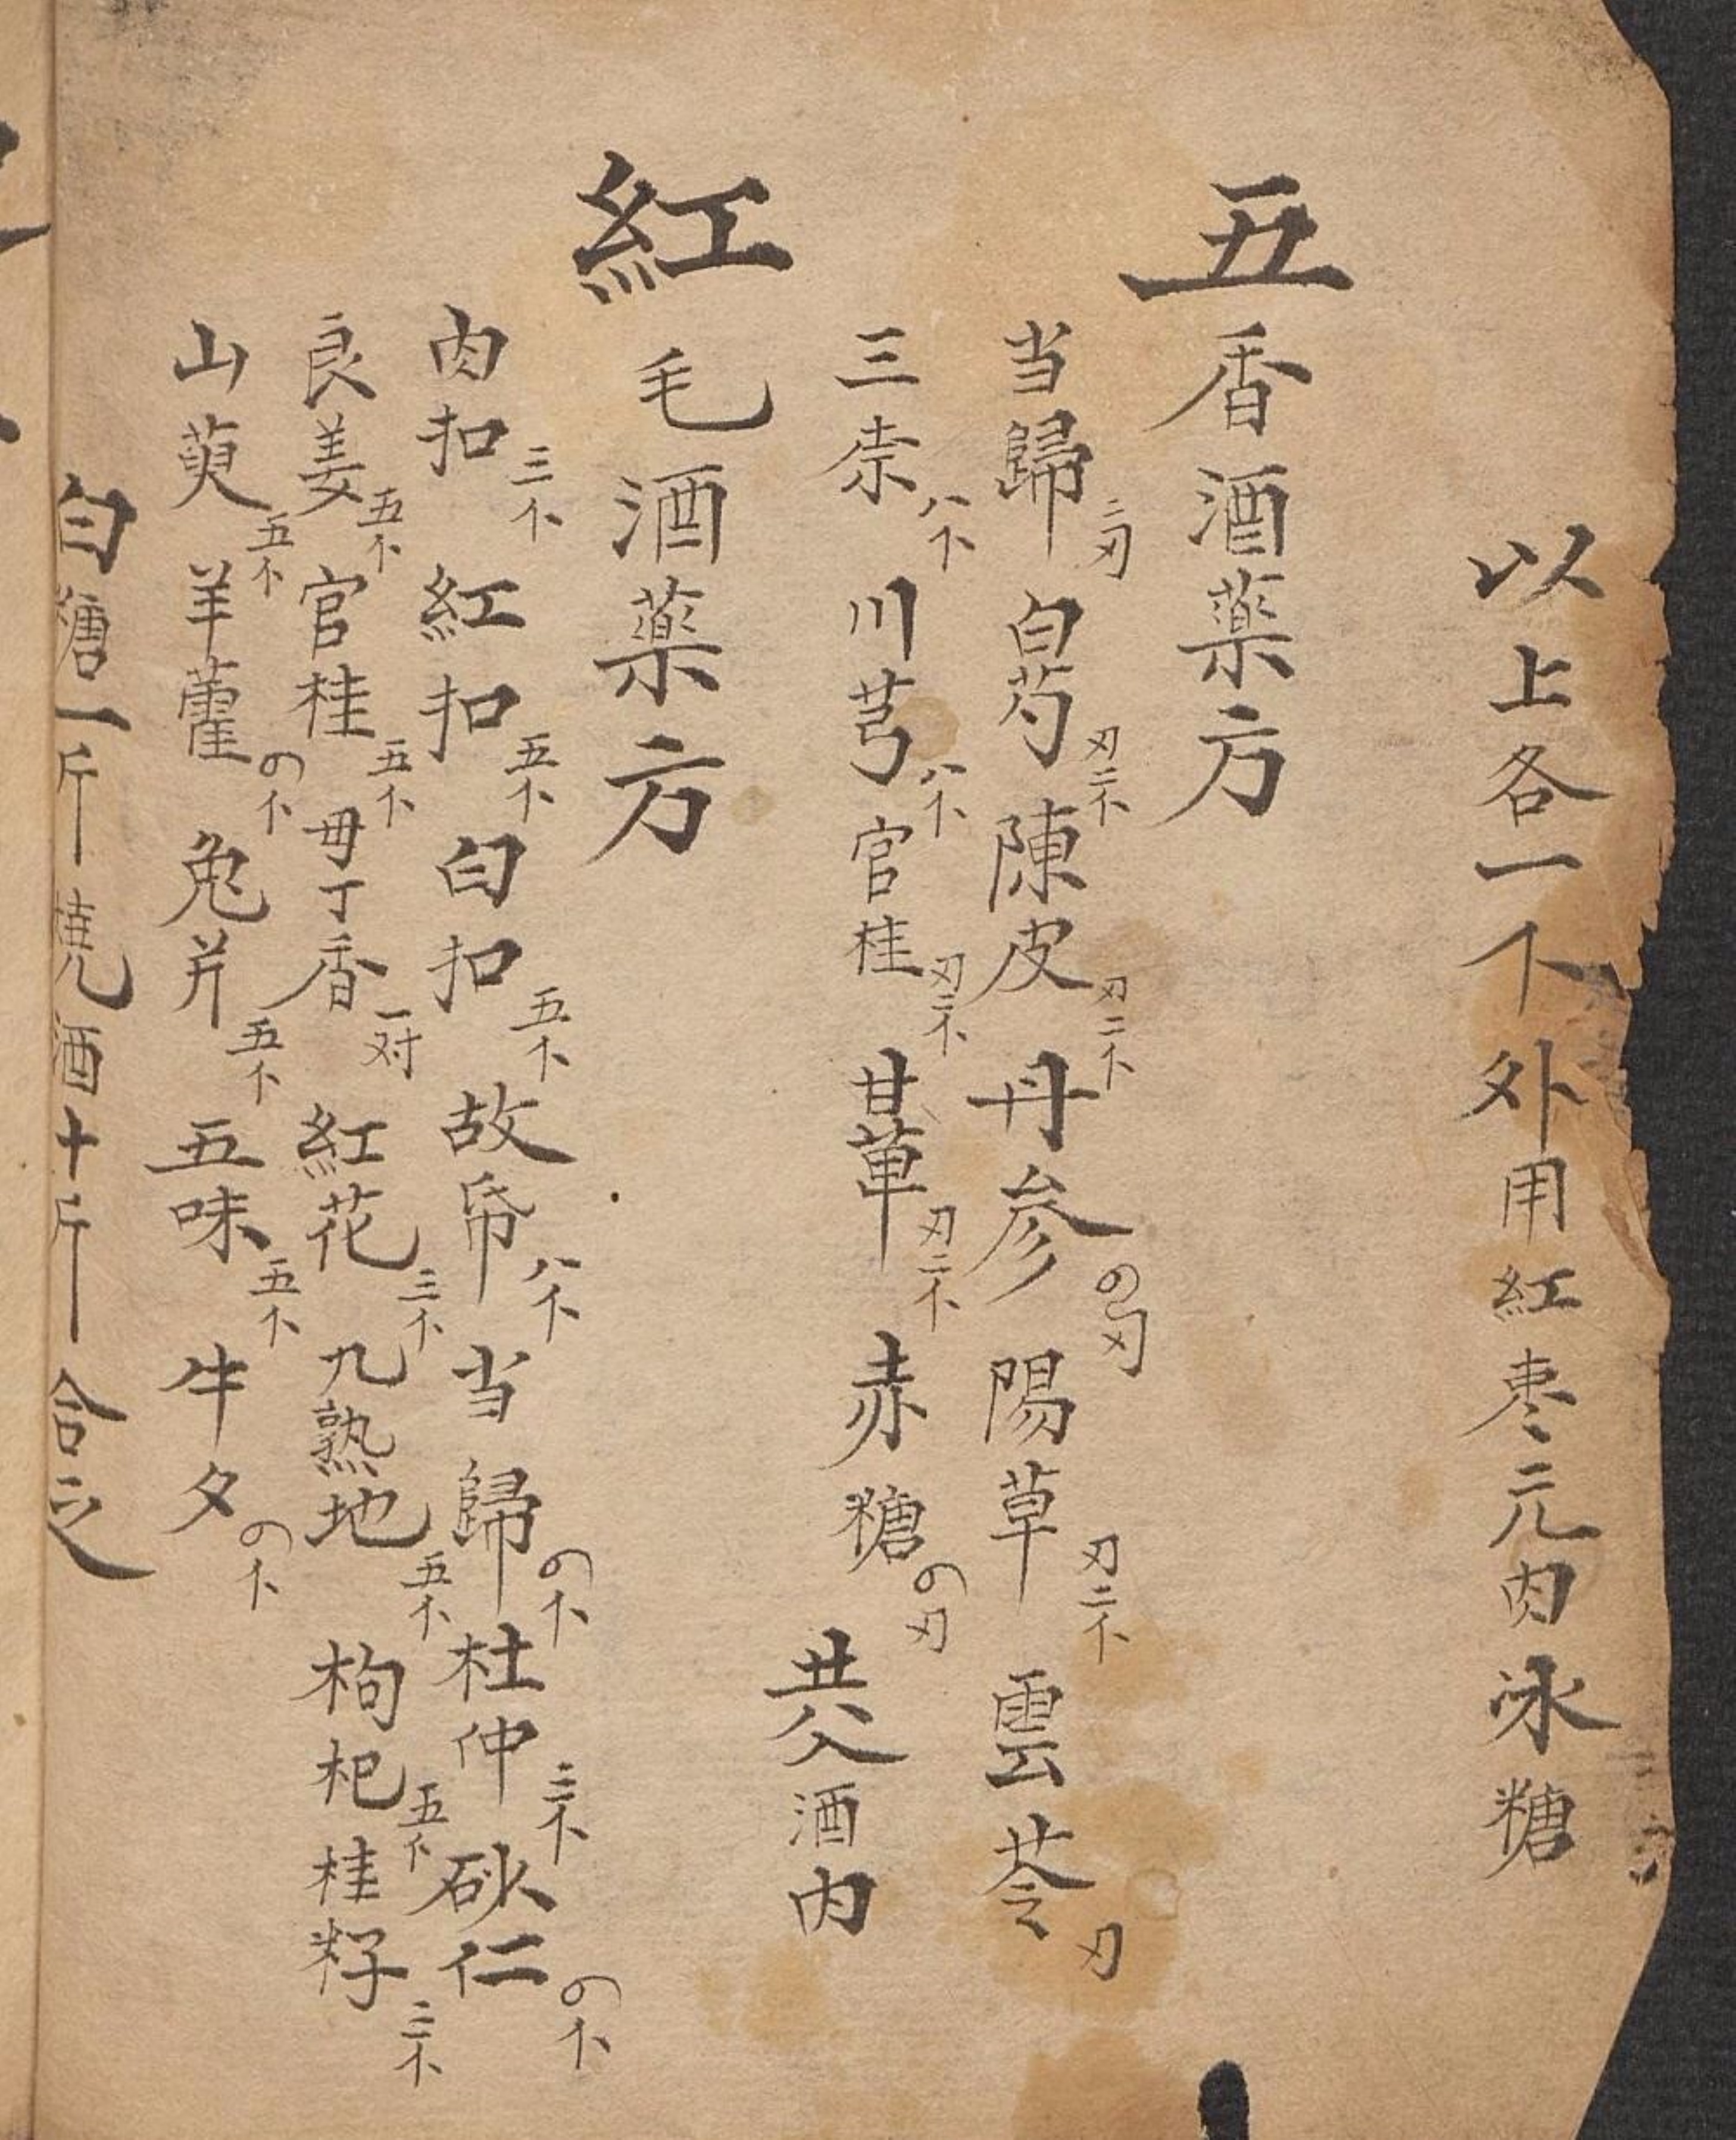 以上各一个外用紅枣元肉冰糖
五香酒藥方
当歸三刃 白芍刃二个 陳皮刃二个 丹参の刃 陽草刃二个 雲苓刃
三柰八个 川芎八个 官桂刃二个 甘草刃二个 赤糖の刃 共入酒内
紅毛酒藥方
肉扣三个 紅扣五个 白扣五个 故帋八个 当歸の个 杜仲三个 砂仁の个
良姜五个 官桂五个 母丁香一对 紅花三个 九熟地五个 枸杞五个 桂籽三个
山萸五个 羊藿の个 兔丝五个 五味五个 牛夕の个
白糖一斤 燒酒十斤 合之